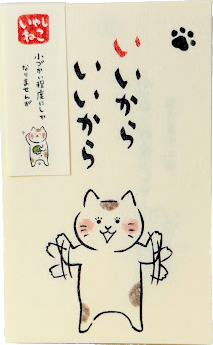 いやしねこ
小づかい程度にしかなりませんが
いいから
いいから